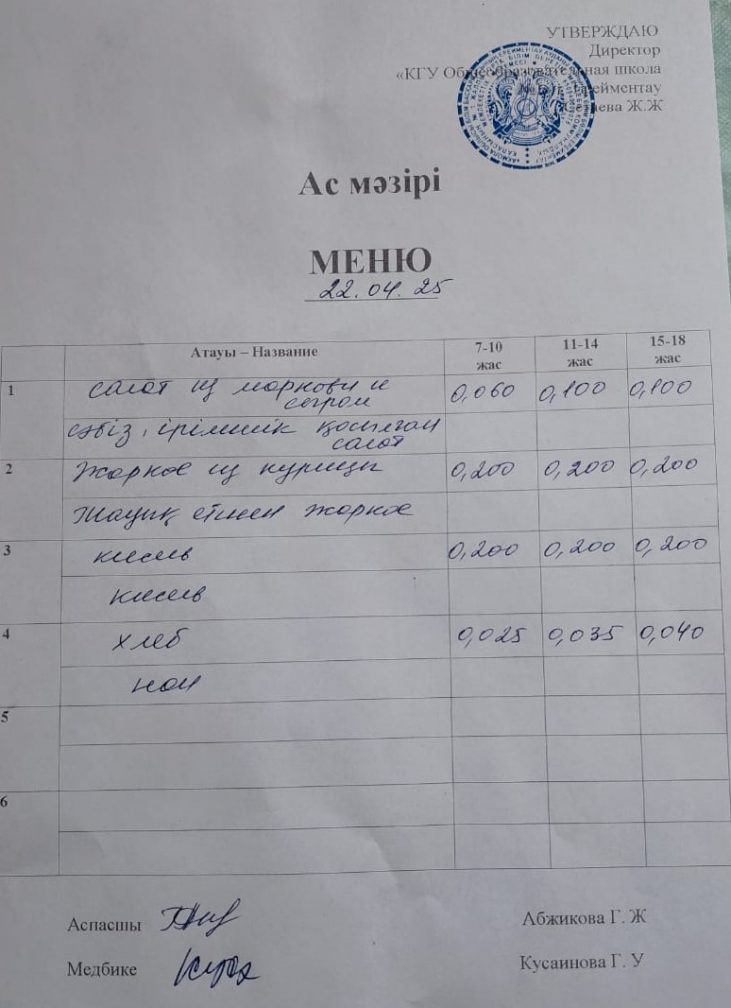 УТВЕРЖДАЮ
Директор
«КГУ Общеобразовательная школа
Ерейментау
Ж.Ж
Ас мәзірі
МЕНЮ
22.04.25
Атауы – Название 7-10 жас 11-14 жас 15-18 жас
1 салат из моркови и сыром 0,060 0,100 0,100
сәбіз, ірімшік қосылған салат
2 Жаркое из курицы 0,200 0,200 0,200
Тауық етінен жаркое
3 кисель 0,200 0,200 0,200
кисель
4 хлеб 0,025 0,035 0,040
нан
5
6
Аспасшы Абжикова Г. Ж
Медбике Кусаинова Г. У